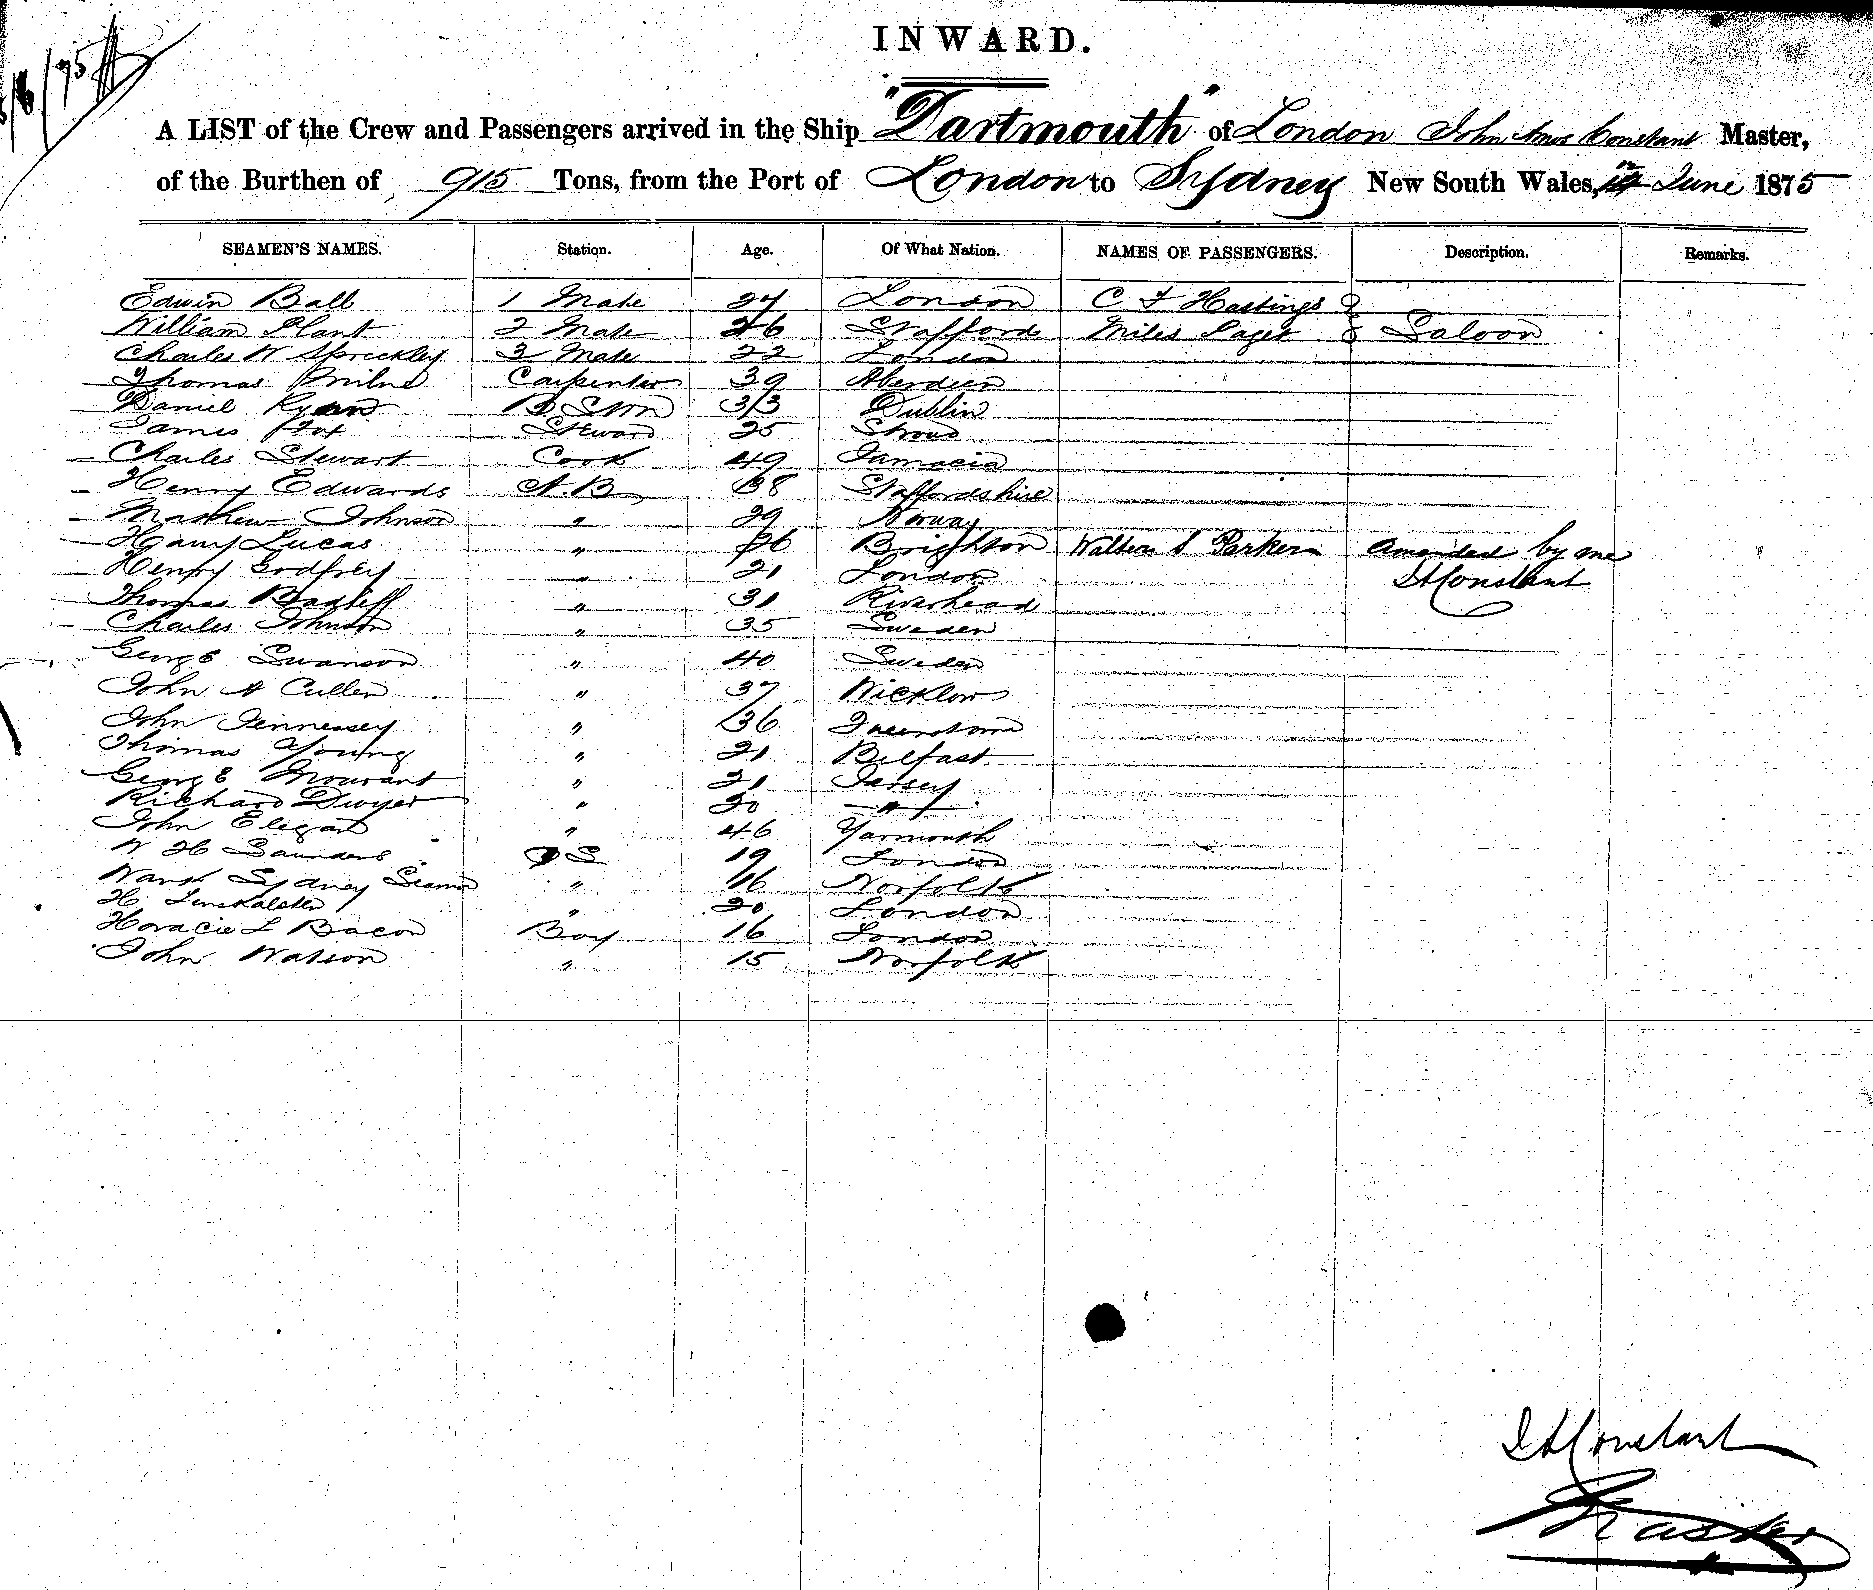 INWARD.
A LIST of the Crew and Passengers arrived in the Ship "Dartmouth" of London John Amos Constant Master,
of the Burthen of 915 Tons, from the Port of London to Sydney New South Wales, June 1875
SEAMEN'S NAMES. Station. Age. Of What Nation. NAMES OF PASSENGERS. Description. Remarks.
Edwin Ball 1 Mate 27 London C F Hastings
William Plant 2 Mate 26 Stafford Miles Saloon
Charles W Spreckley 3 Mate 22 London
Thomas Milne Carpenter 39 Aberdeen
Daniel Ryan 33 Dublin
James Fox Steward 25 Stroud
Charles Stewart Cook 49 Jamacia
Henry Edwards A.B 38 Staffordshire
Mathew Johnson " 29 Norway
Harry Lucas " 26 Brighton Walter S Parker Amended by me
Henry Godfrey " 21 London JAConstant
Thomas " 31 Riverhead
Charles Johnson " 35 Sweden
George Swanson " 40 Sweden
John A Cullen " 37 Wicklow
John " 36
Thomas Young " 21 Belfast
George Mourant " 21 Jersey
Richard Dwyer " 20 "
John " 46 Yarmouth
W H Saunders O S 19 London
Sydney " 16 Norfolk
H " 20 London
Horacie L Bacon Boy 16 London
John Watson " 15 Norfolk
JAConstant
Master